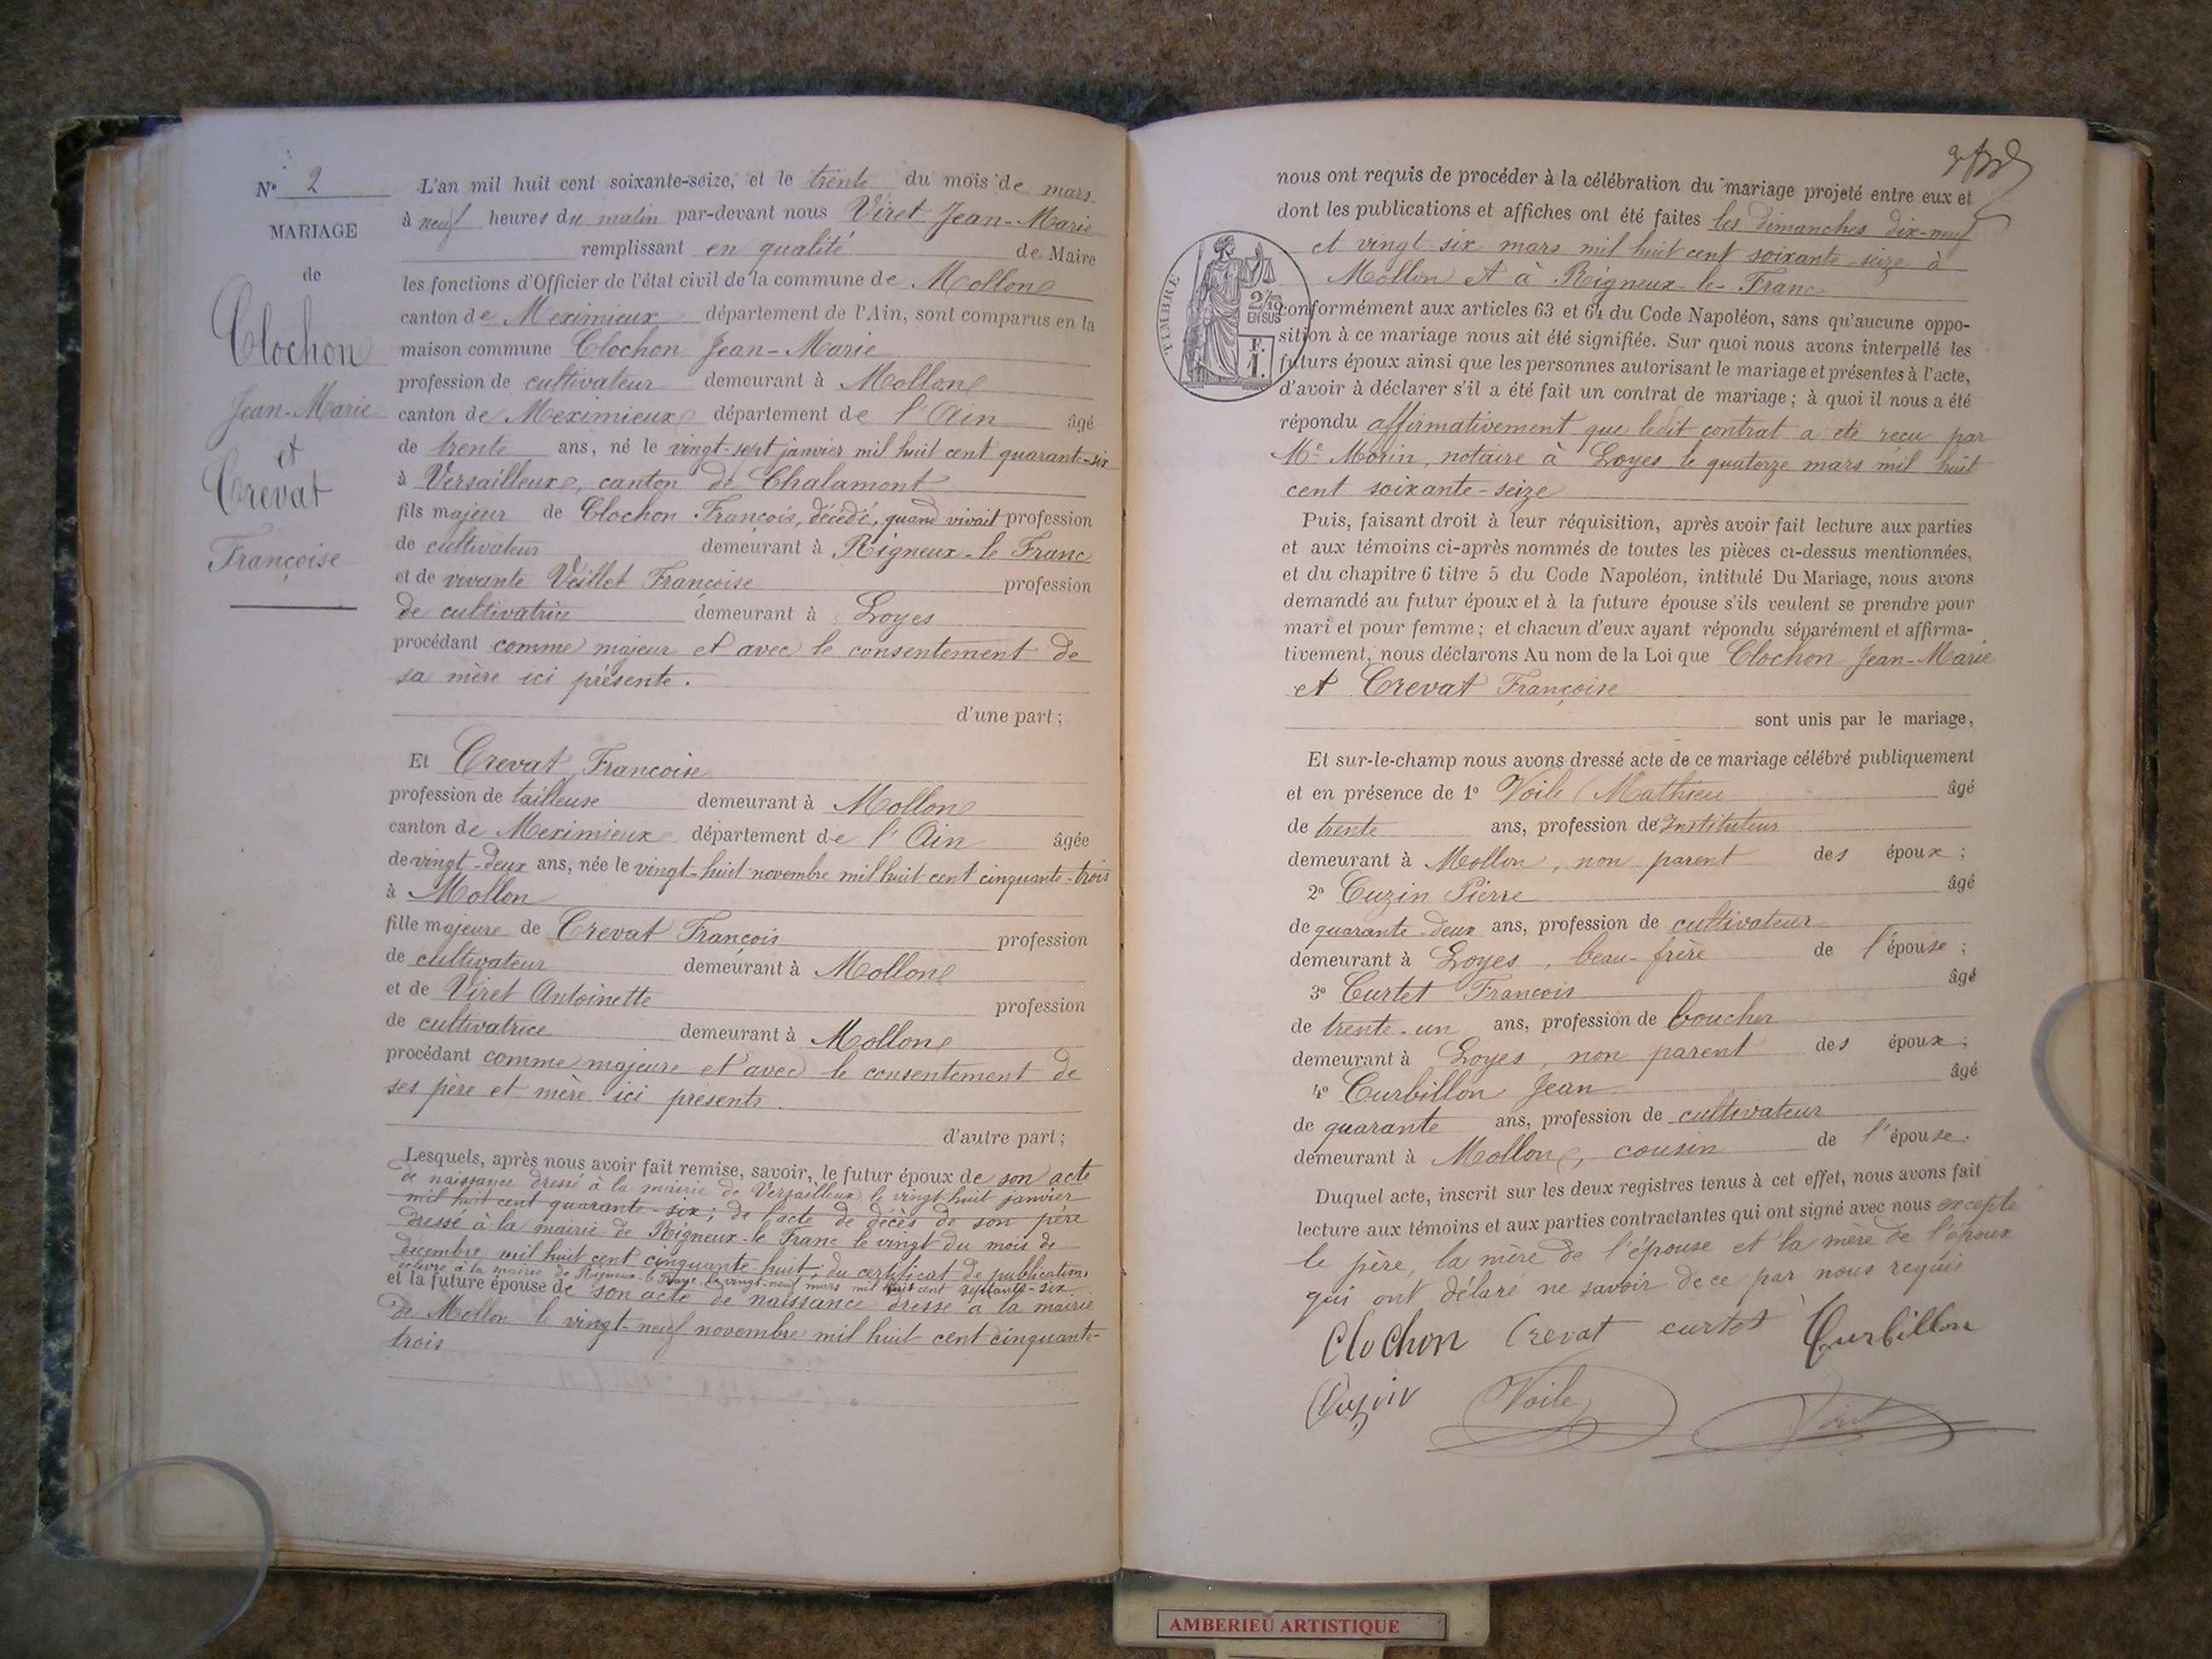 N° 2
MARIAGE
de
Clochon
Jean-Marie
et
Crevat
Françoise
L'an mil huit cent soixante-seize, et le trente du mois de mars
à neuf heures du matin par-devant nous Viret Jean-Marie
remplissant en qualité de Maire
les fonctions d'Officier de l'état civil de la commune de Mollon
canton de Meximieux département de l'Ain, sont comparus en la
maison commune Clochon Jean-Marie
profession de cultivateur demeurant à Mollon
canton de Meximieux département de l'Ain âgé
de trente ans, né le vingt-sept janvier mil huit cent quarante-six
à Versailleux, canton de Chalamont
fils majeur de Clochon François, décédé, quand vivait profession
de cultivateur demeurant à Rigneux-le-Franc
et de vivante Veillet Françoise profession
de cultivatrice demeurant à Loyes
procédant comme majeur et avec le consentement de
sa mère ici présente.
d'une part;
Et Crevat Françoise
profession de tailleuse demeurant à Mollon
canton de Meximieux département de l'Ain âgée
de vingt-deux ans, née le vingt-huit novembre mil huit cent cinquante-trois
à Mollon
fille majeure de Crevat François profession
de cultivateur demeurant à Mollon
et de Viret Antoinette profession
de cultivatrice demeurant à Mollon
procédant comme majeure et avec le consentement de
ses père et mère ici présents.
d'autre part;
Lesquels, après nous avoir fait remise, savoir, le futur époux de son acte
de naissance dressé à la mairie de Versailleux le vingt-huit janvier
mil huit cent quarante-six; de l'acte de décès de son père
dressé à la mairie de Rigneux-le-Franc le vingt du mois de
décembre mil huit cent cinquante-huit; du certificat de publications
délivré à la mairie de Rigneux-le-Franc, le vingt-neuf mars mil huit cent septante-six.
et la future épouse de son acte de naissance dressé à la mairie
de Mollon le vingt-neuf novembre mil huit cent cinquante-
trois
nous ont requis de procéder à la célébration du mariage projeté entre eux et
dont les publications et affiches ont été faites les dimanches dix-neuf
et vingt-six mars mil huit cent soixante-seize à
Mollon et à Rigneux-le-Franc
TIMBRE
2/10
EN SUS
F.
1.
conformément aux articles 63 et 64 du Code Napoléon, sans qu'aucune oppo-
sition à ce mariage nous ait été signifiée. Sur quoi nous avons interpellé les
futurs époux ainsi que les personnes autorisant le mariage et présentes à l'acte,
d'avoir à déclarer s'il a été fait un contrat de mariage; à quoi il nous a été
répondu affirmativement que ledit contrat a été reçu par
Me Morin, notaire à Loyes le quatorze mars mil huit
cent soixante-seize
Puis, faisant droit à leur réquisition, après avoir fait lecture aux parties
et aux témoins ci-après nommés de toutes les pièces ci-dessus mentionnées,
et du chapitre 6 titre 5 du Code Napoléon, intitulé Du Mariage, nous avons
demandé au futur époux et à la future épouse s'ils veulent se prendre pour
mari et pour femme; et chacun d'eux ayant répondu séparément et affirma-
tivement, nous déclarons Au nom de la Loi que Clochon Jean-Marie
et Crevat Françoise
sont unis par le mariage,
Et sur-le-champ nous avons dressé acte de ce mariage célébré publiquement
et en présence de 1° Voile Mathieu âgé
de trente ans, profession de Instituteur
demeurant à Mollon, non parent des époux;
2° Cuzin Pierre âgé
de quarante-deux ans, profession de cultivateur
demeurant à Loyes, beau-frère de l'épouse;
3° Curtet François âgé
de trente-un ans, profession de boucher
demeurant à Loyes, non parent des époux;
4° Curbillon Jean âgé
de quarante ans, profession de cultivateur
demeurant à Mollon, cousin de l'épouse.
Duquel acte, inscrit sur les deux registres tenus à cet effet, nous avons fait
lecture aux témoins et aux parties contractantes qui ont signé avec nous excepté
le père, la mère de l'épouse et la mère de l'époux
qui ont délaré ne savoir de ce par nous requis
Clochon Crevat curtet Curbillon
Cuzin Voile Viret
AMBERIEU ARTISTIQUE